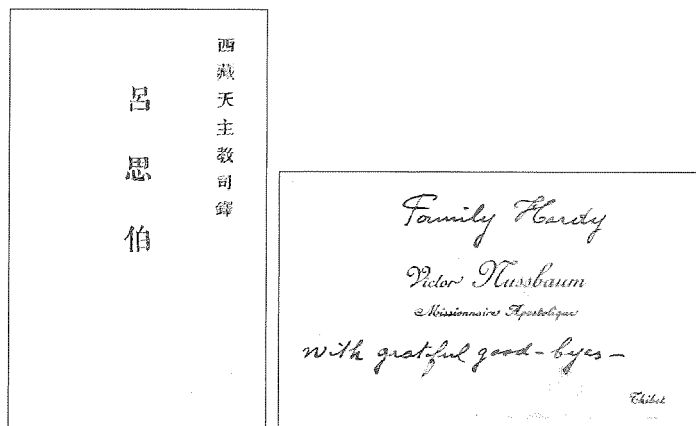 西藏天主教司鐸
呂思伯
Family Hardy
Victor Nussbaum
Missionnaire Apostolique
with grateful good-byes-
Thibet